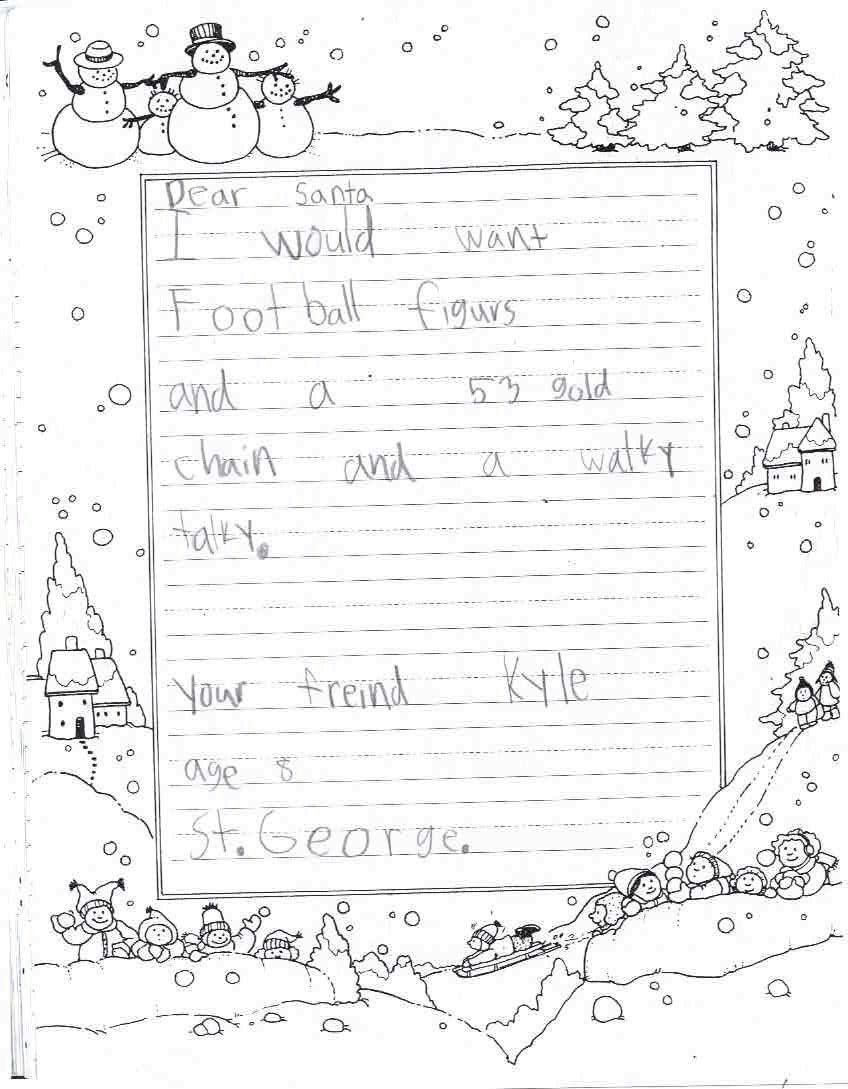 Dear Santa
I would want
Football figurs
and a 53 gold
chain and a walky
talky.
your freind Kyle
age 8
St. George.